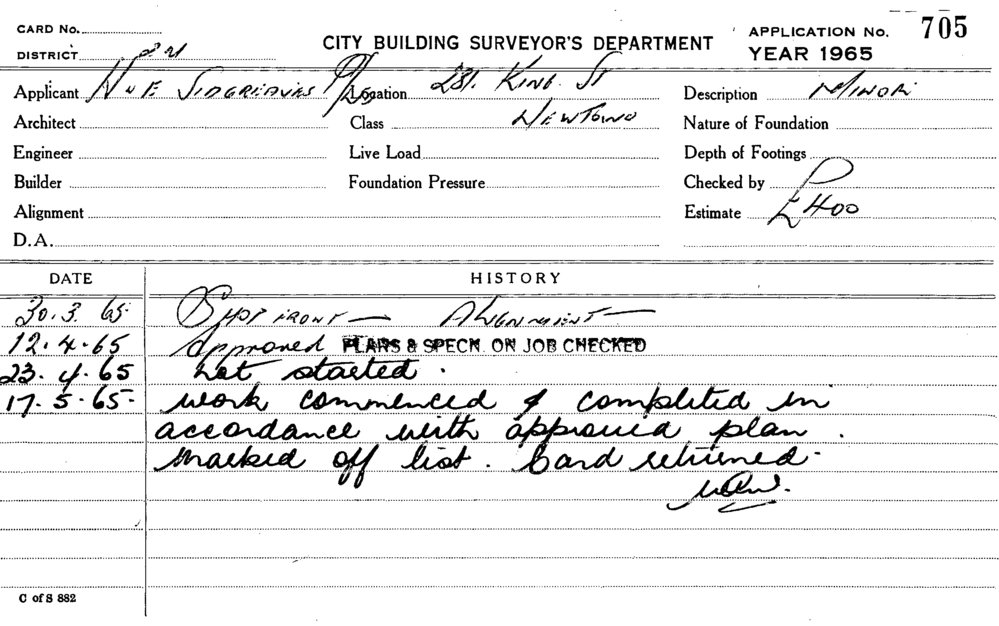 CARD No.
APPLICATION No. 705
DISTRICT
CITY BUILDING SURVEYOR'S DEPARTMENT
YEAR 1965
Applicant H & E Sidgreaves P/L Location 281. King. St Description Minor
Architect Class Newtown Nature of Foundation
Engineer Live Load Depth of Footings
Builder Foundation Pressure Checked by
Alignment Estimate £400
D.A.
DATE HISTORY
30.3.65 Shop front — Alignment —
12.4.65 Approved PLANS & SPECN. ON JOB CHECKED
23.4.65 Not started.
17.5.65 work commenced & completed in
accordance with approved plan.
Marked off list. Card returned.
C of S 882